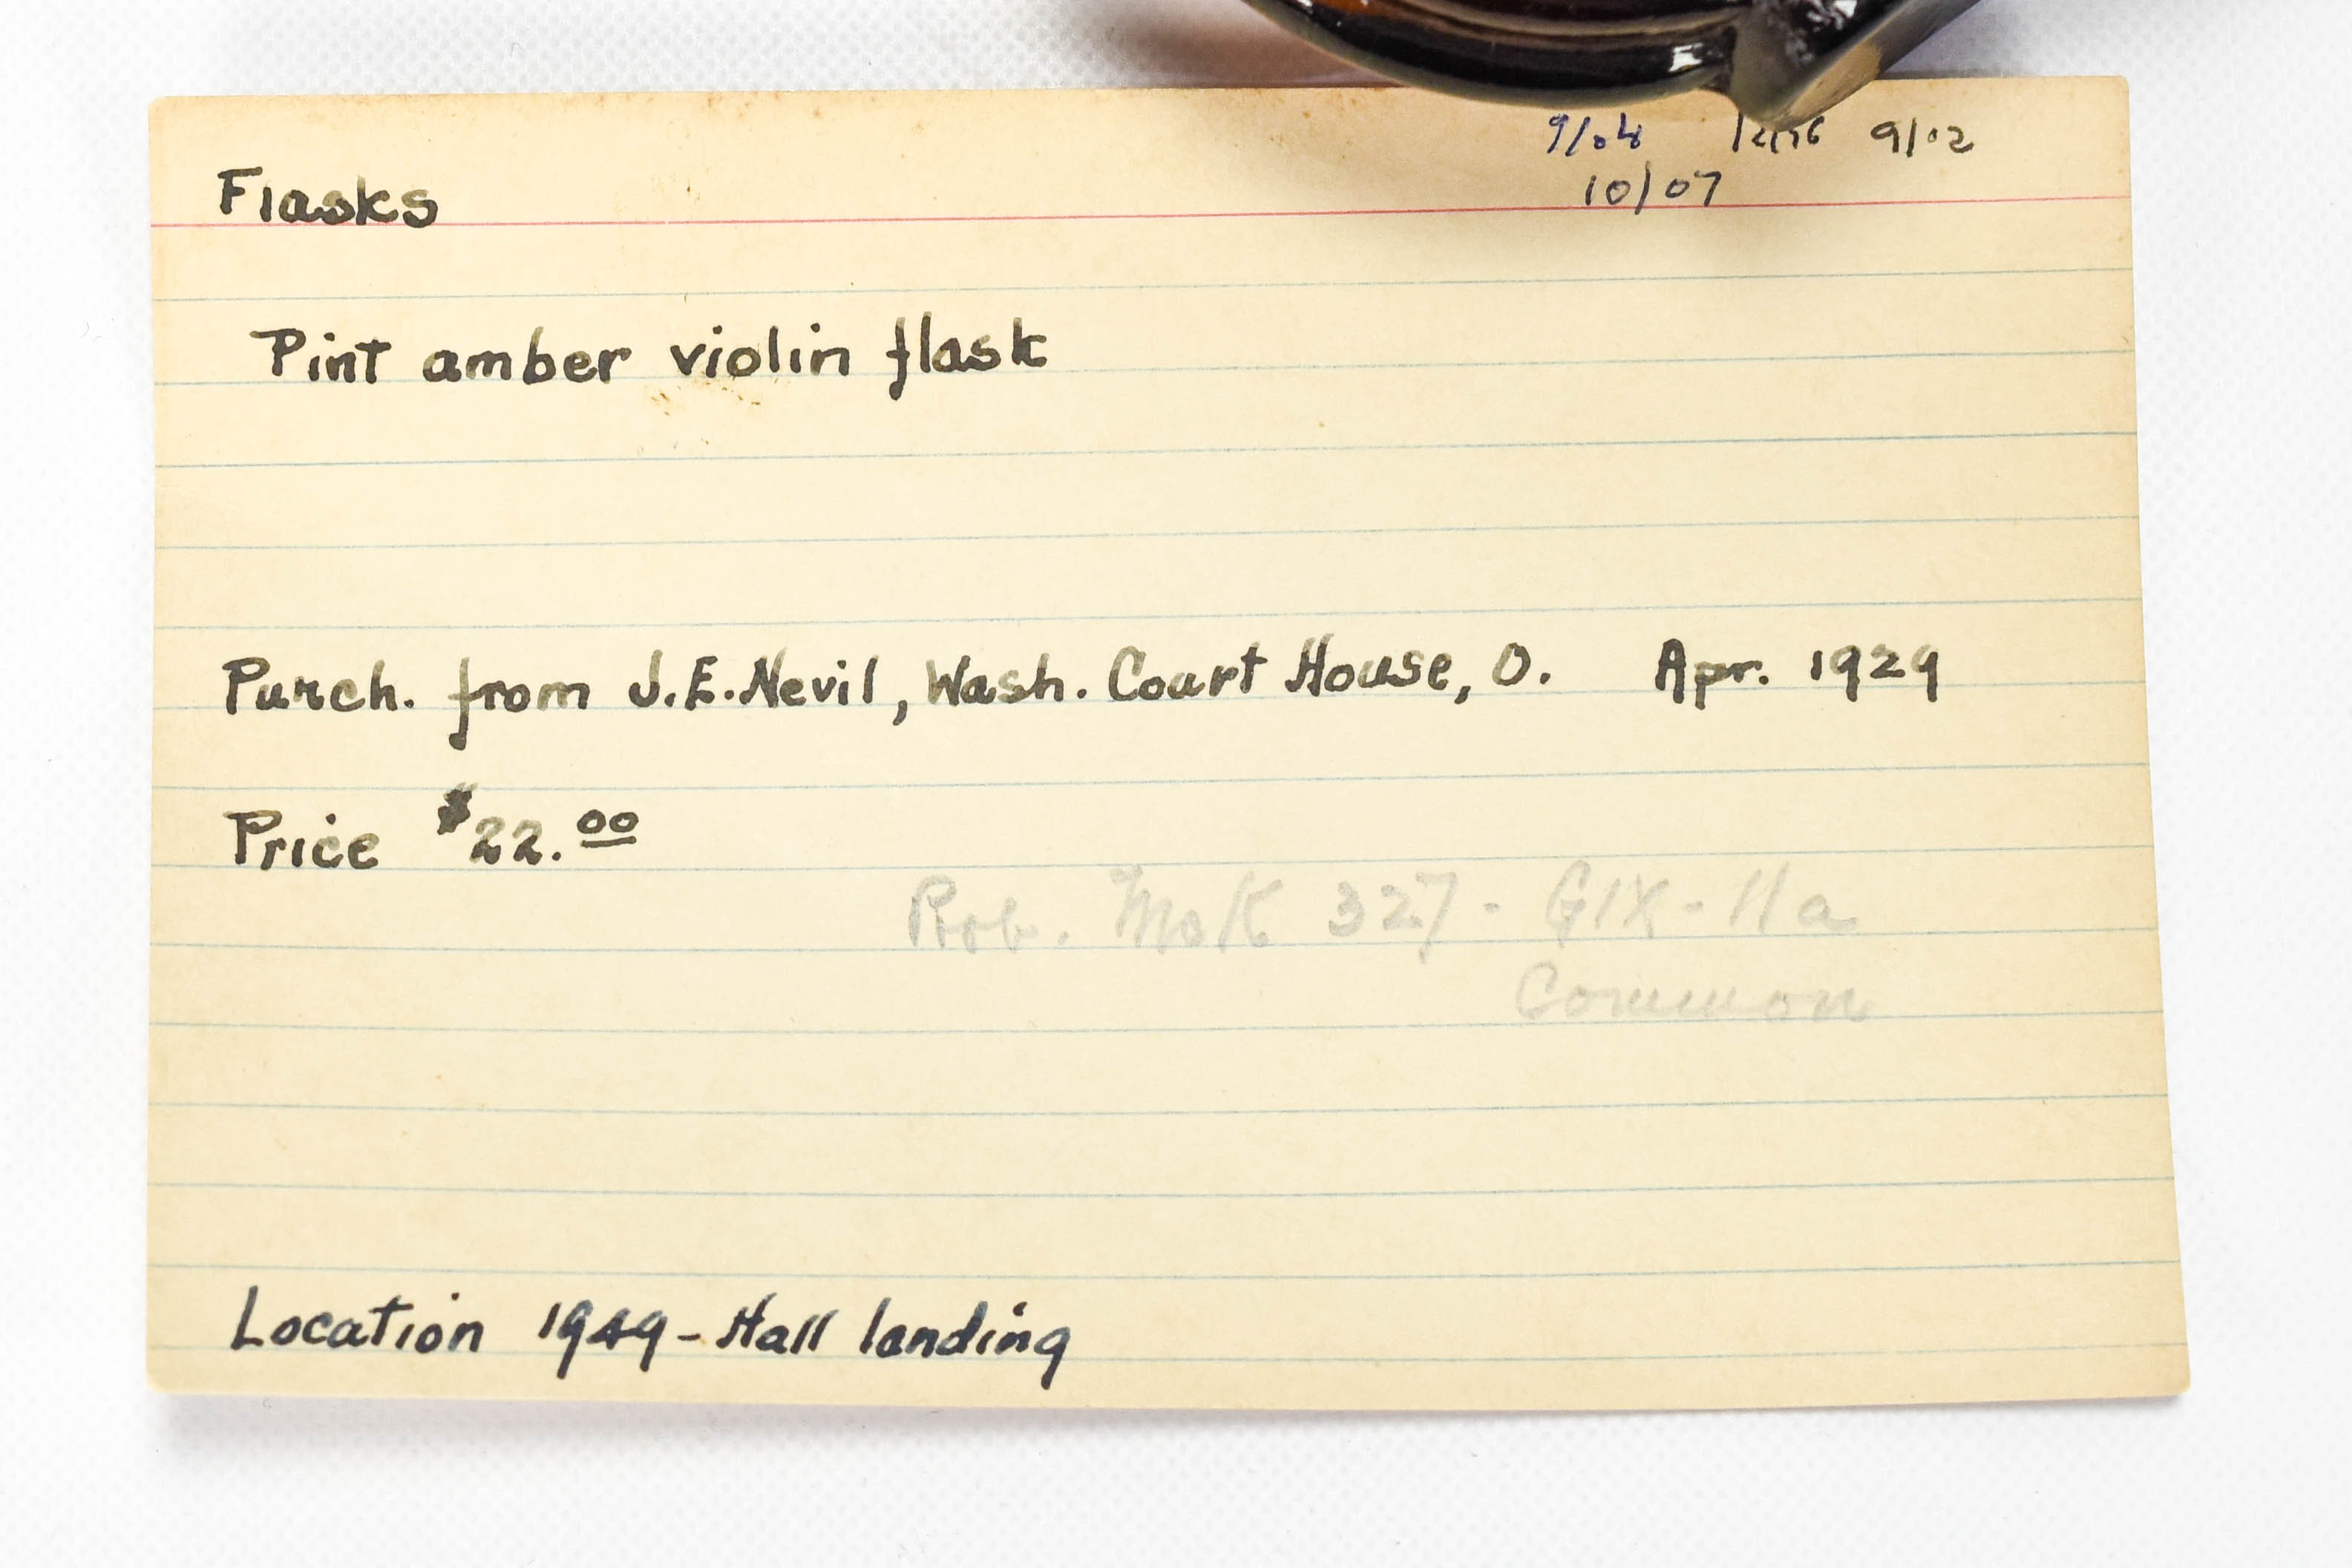 9/04 9/02
10/07
Flasks
Pint amber violin flask
Purch. from J.E.Nevil, Wash. Court House, O. Apr. 1929
Price $22.00
Rob. McK 327 - GIX - 11a
Common
Location 1949 - Hall landing